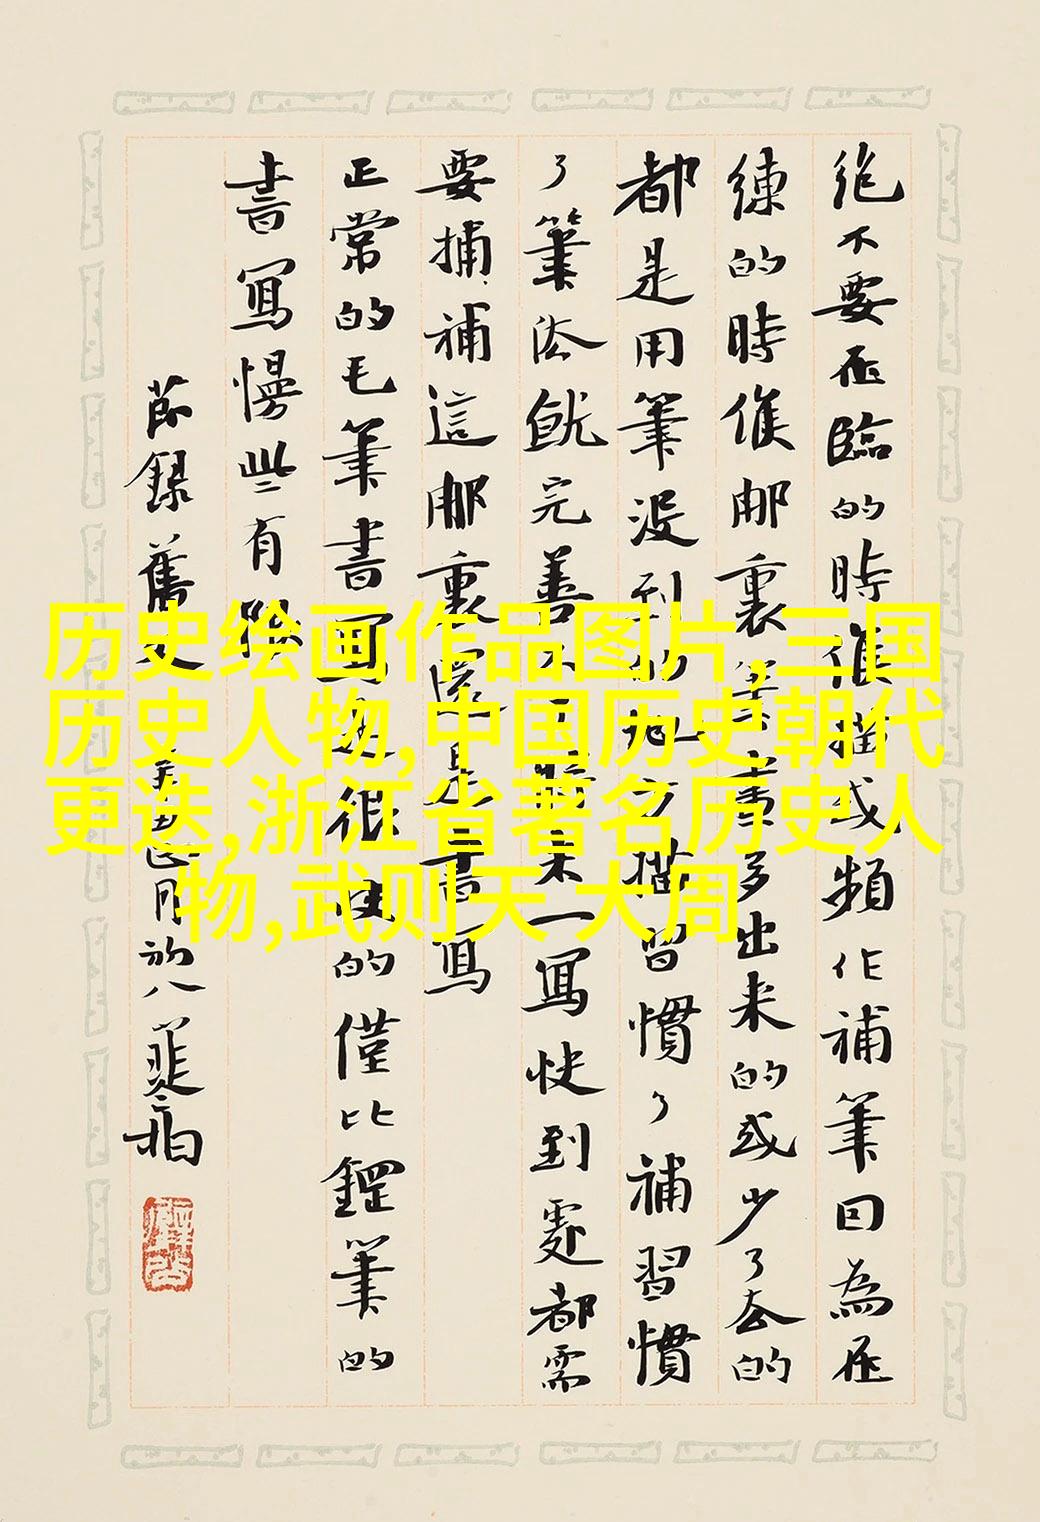 历史绘画作品图片,三国
历史人物,中国历史朝代
更迭,浙江省著名历史人
物,武则天 大周
絶不要在臨的時候描或頻作補筆因為在
練的時候那裏筆畫多出來的或少了去的
都是用筆沒到的地方描習慣了補習慣
了筆法就完善不了將來一寫快到處都需
要捕補這那裏還是書寫
正常的毛筆書寫很快的僅比鋼筆的
書寫慢些有限
節錄舊文月初八